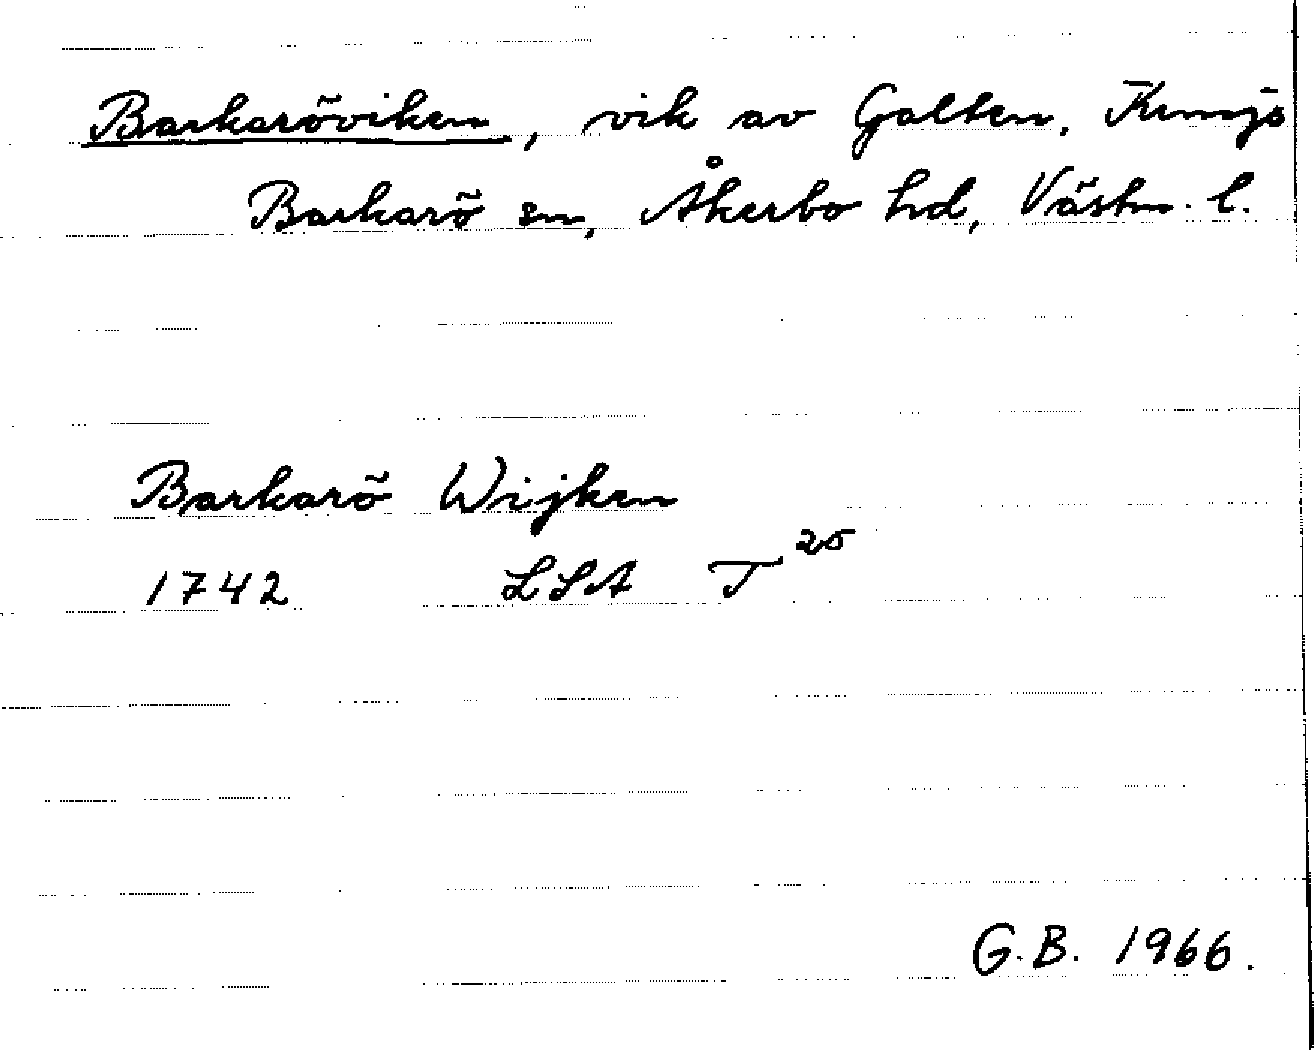 Barkaröviken, vik av Galten, Kungs
Barkarö sn, Åkerbo hd, Västm. l.
Barkarö Wijken
1742 LSA T 25
G.B. 1966.